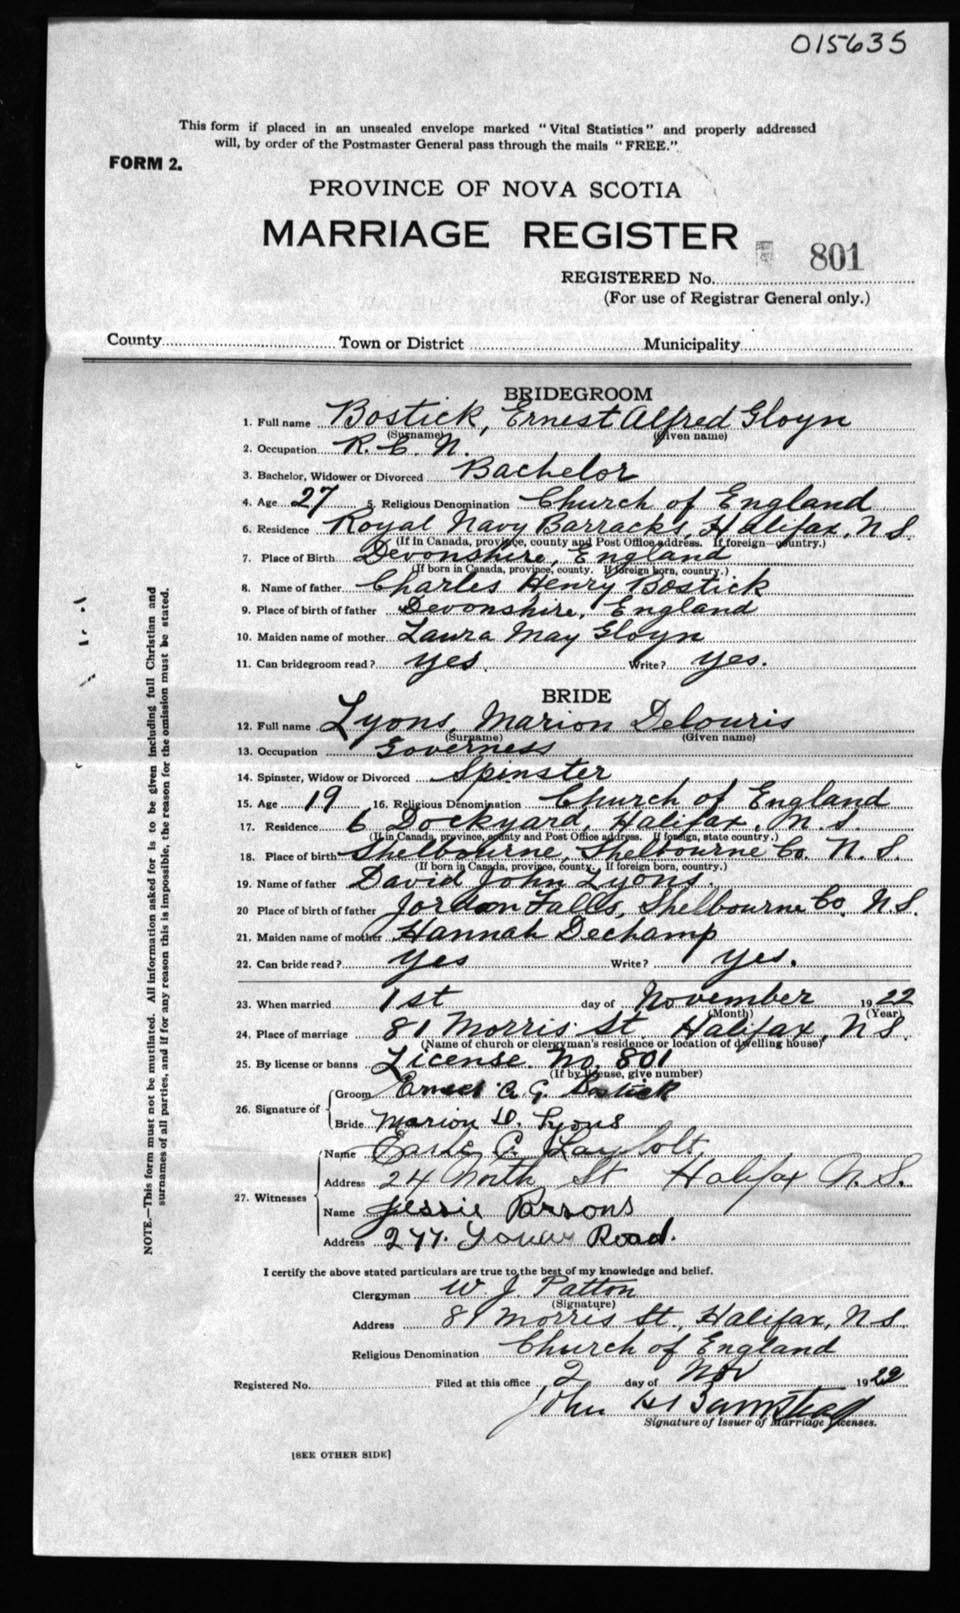 015635
This form if placed in an unsealed envelope marked "Vital Statistics" and properly addressed
will, by order of the Postmaster General pass through the mails "FREE."
FORM 2.
PROVINCE OF NOVA SCOTIA
MARRIAGE REGISTER
REGISTERED No. 801
(For use of Registrar General only.)
County Town or District Municipality
BRIDEGROOM
1. Full name Bostick, Ernest Alfred Gloyn
(Surname) (Given name)
2. Occupation R.C.N.
3. Bachelor, Widower or Divorced Bachelor
4. Age 27 5. Religious Denomination Church of England
6. Residence Royal Navy Barracks, Halifax, N.S.
(If in Canada, province, county and Post Office address. If foreign—country.)
7. Place of Birth Devonshire, England
(If born in Canada, province, county. If foreign born, country.)
8. Name of father Charles Henry Bostick
9. Place of birth of father Devonshire, England
10. Maiden name of mother Laura May Gloyn
11. Can bridegroom read? yes. Write? yes.
BRIDE
12. Full name Lyons, Marion Delouris
(Surname) (Given name)
13. Occupation Governess
14. Spinster, Widow or Divorced Spinster
15. Age 19 16. Religious Denomination Church of England
17. Residence 6 Dockyard, Halifax, N.S.
(If in Canada, province, county and Post Office address. If foreign, state country.)
18. Place of birth Shelbourne, Shelbourne Co. N.S.
(If born in Canada, province, county. If foreign born, country.)
19. Name of father David John Lyons.
20 Place of birth of father Jordon Falls, Shelbourne Co. N.S.
21. Maiden name of mother Hannah Dechamp
22. Can bride read? yes Write? yes.
23. When married 1st day of November 1922
(Month) (Year)
24. Place of marriage 81 Morris St. Halifax, N.S.
(Name of church or clergyman's residence or location of dwelling house)
25. By license or banns License. No. 801
(If by license, give number)
26. Signature of
Groom Ernest A. G. Bostick
Bride Marion D. Lyons
27. Witnesses
Name Earle C.
Address 24 North St Halifax N.S.
Name Jessie Parsons
Address 277. Road.
I certify the above stated particulars are true to the best of my knowledge and belief.
Clergyman W. J. Patton
(Signature)
Address 81 Morris St., Halifax, N.S.
Religious Denomination Church of England
Registered No. Filed at this office 2 day of Nov 1922
John H Barnstead
Signature of Issuer of Marriage Licenses.
[SEE OTHER SIDE]
NOTE.—This form must not be mutilated. All information asked for is to be given including full Christian and
surnames of all parties, and if for any reason this is impossible, the reason for the omission must be stated.